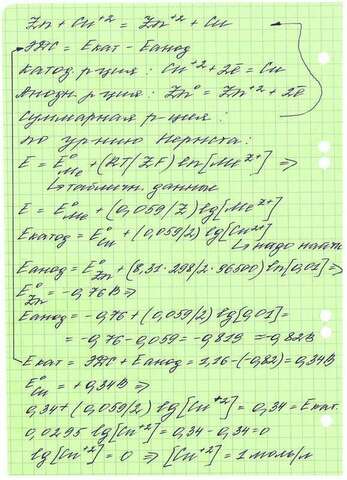 Zn + Cu⁺² = Zn⁺² + Cu
ЭДС = Eкат - Eанод
катод. р-ция: Cu⁺² + 2ē = Cu
Анодн. р-ция: Zn⁰ = Zn⁺² + 2ē
Суммарная р-ция:
по ур-нию Нернста:
E = E⁰Me + (RT/ZF) ln[Meᶻ⁺] ⇒
↳ табличн. данные
E = E⁰Me + (0,059/Z) lg[Meᶻ⁺]
Eкатод = E⁰Cu + (0,059/2) lg[Cu²⁺]
↳ надо найти
Eанод = E⁰Zn + (8,31·298/2·96500) ln[0,01] ⇒
E⁰Zn = -0,76В ⇒
Eанод = -0,76 + (0,059/2) lg[0,01] =
= -0,76 - 0,059 = -0,819 = -0,82В
Eкат = ЭДС + Eанод = 1,16 - (-0,82) = 0,34В
E⁰Cu = +0,34В ⇒
0,34 + (0,059/2) lg[Cu⁺²] = 0,34 = Eкат.
0,0295 lg[Cu⁺²] = 0,34 - 0,34 = 0
lg[Cu⁺²] = 0 ⇒ [Cu⁺²] = 1 моль/л